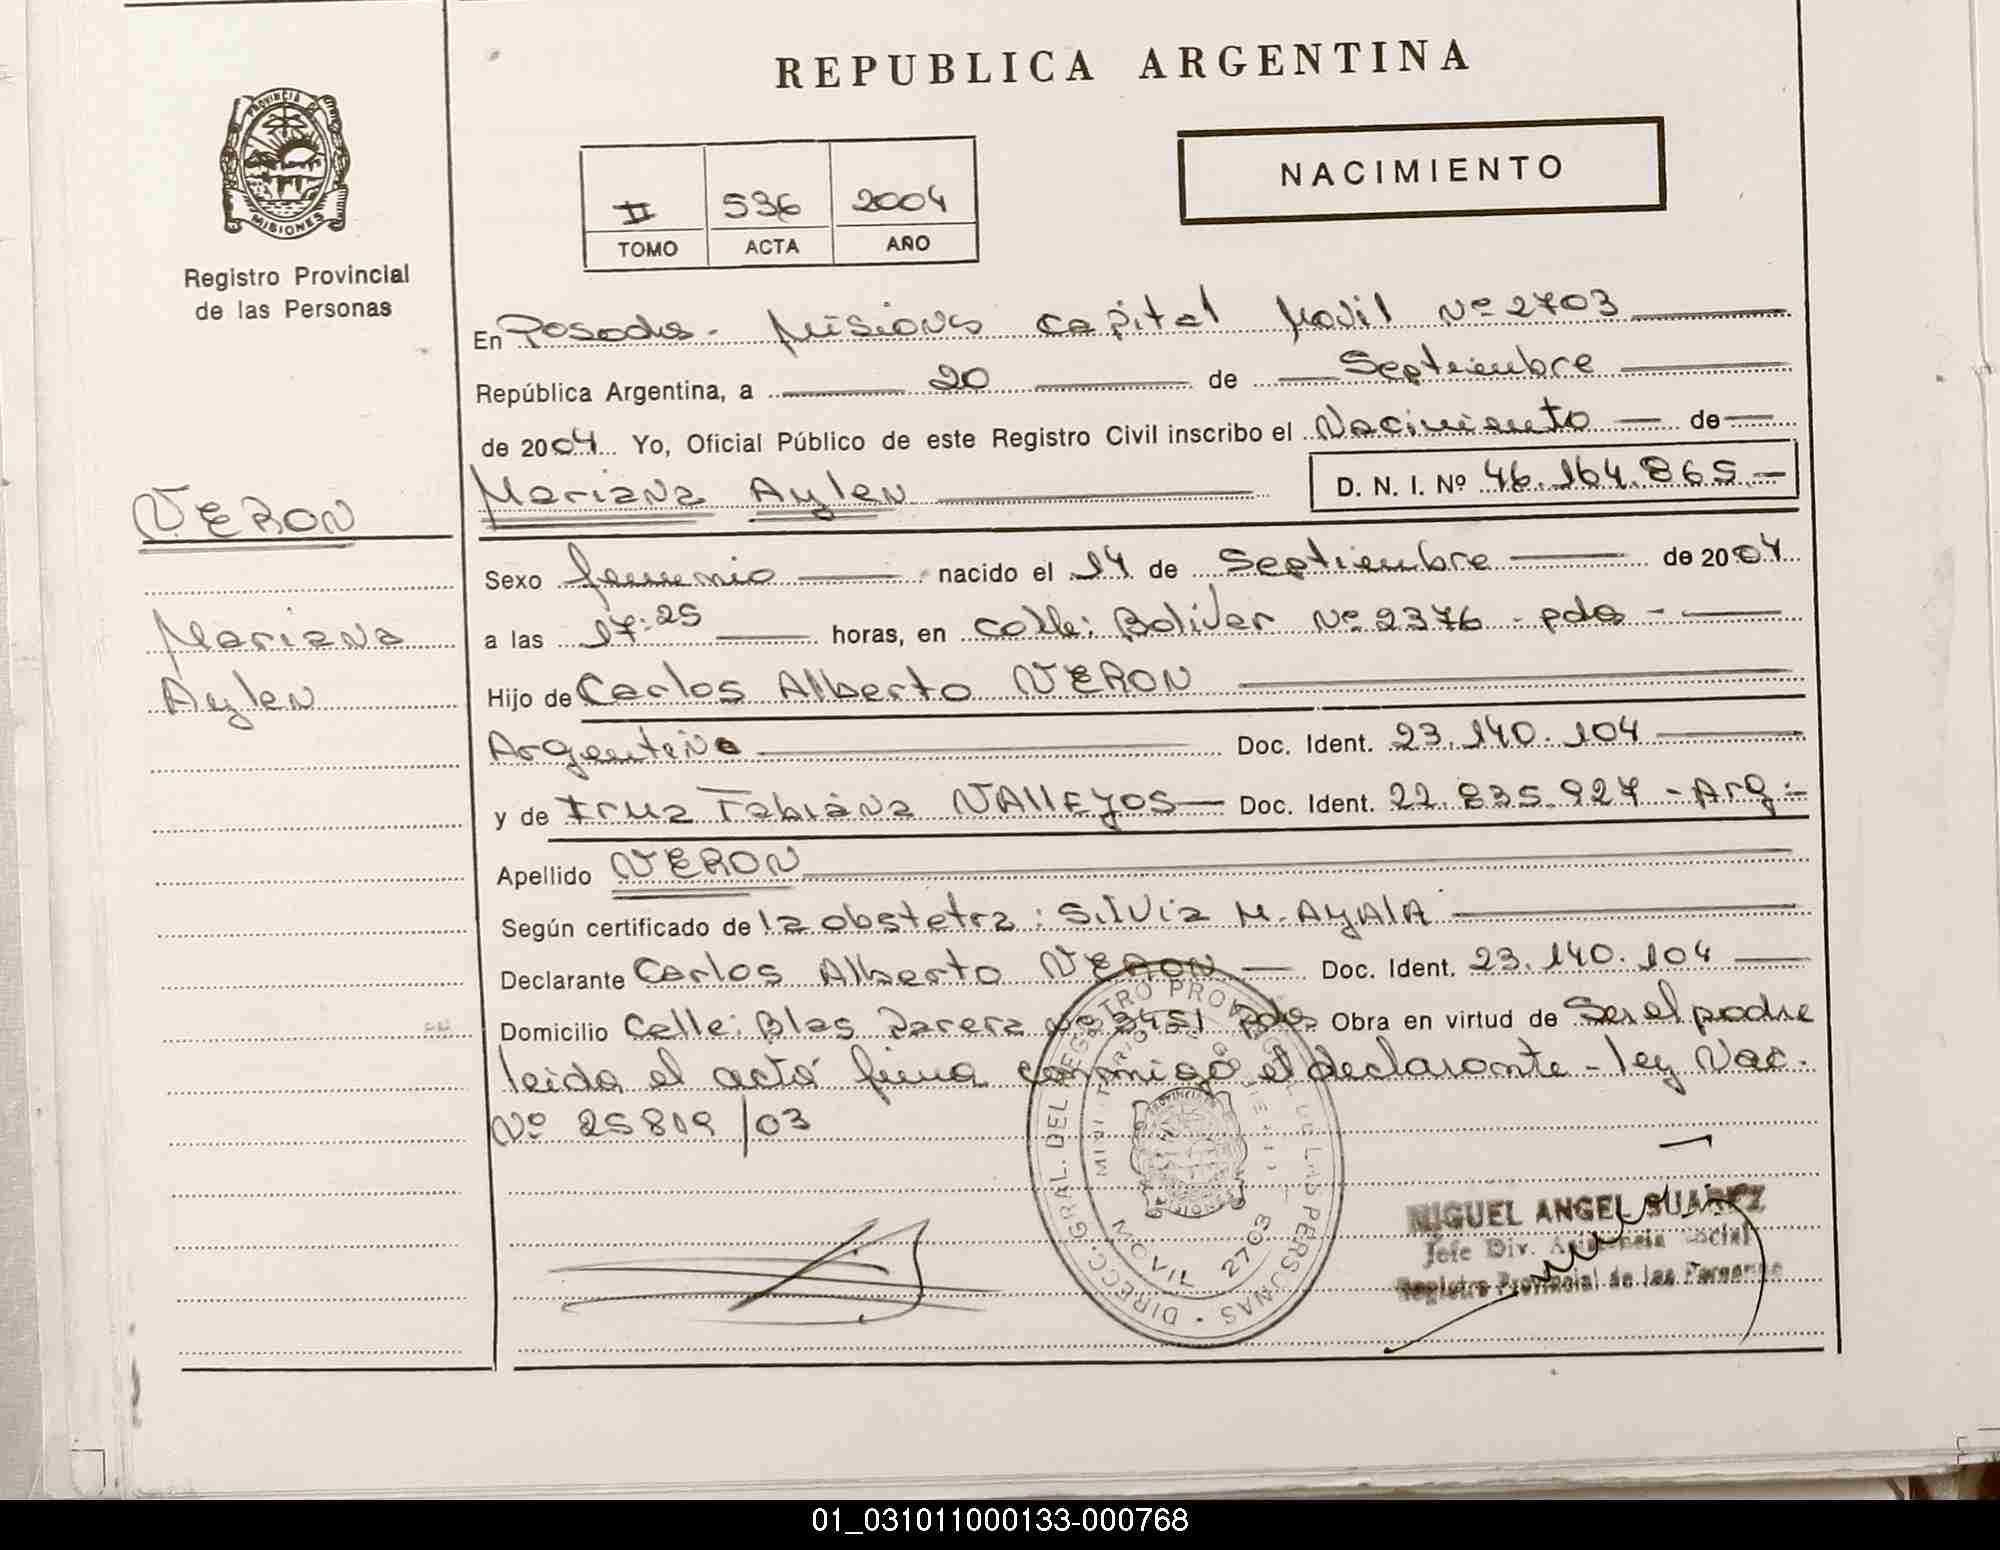 REPUBLICA ARGENTINA
PROVINCIA DE
MISIONES
Registro Provincial
de las Personas
NACIMIENTO
II 536 2004
TOMO ACTA AÑO
En Posadas - Misiones Capital Movil Nº 2703
República Argentina, a 20 de Septiembre
de 2004 Yo, Oficial Público de este Registro Civil inscribo el Nacimiento de
Mariana Aylen D. N. I. Nº 46.164.865.-
VERON
Mariana
Aylen
Sexo femenio nacido el 14 de Septiembre de 2004
a las 17:25 horas, en calle: Bolivar Nº 2376 - pdas -
Hijo de Carlos Alberto VERON
Argentino Doc. Ident. 23.140.104
y de Irma Fabiana VALLEJOS Doc. Ident. 22.835.927 - Arg :-
Apellido VERON
Según certificado de la obstetra: Silvia M. AyAlA
Declarante Carlos Alberto VERON Doc. Ident. 23.140.104
Domicilio Calle: Blas Parera Nº 3451 Pdas Obra en virtud de Ser el padre
leida el acta firma conmigo el declarante - ley Nac.
Nº 25819/03
DIRECC. GRAL. DEL REGISTRO PROVINCIAL DE LAS PERSONAS
MOVIL 2703
MIGUEL ANGEL SUAREZ
Jefe Div. Asistencia Social
Registro Provincial de las Personas
01_031011000133-000768